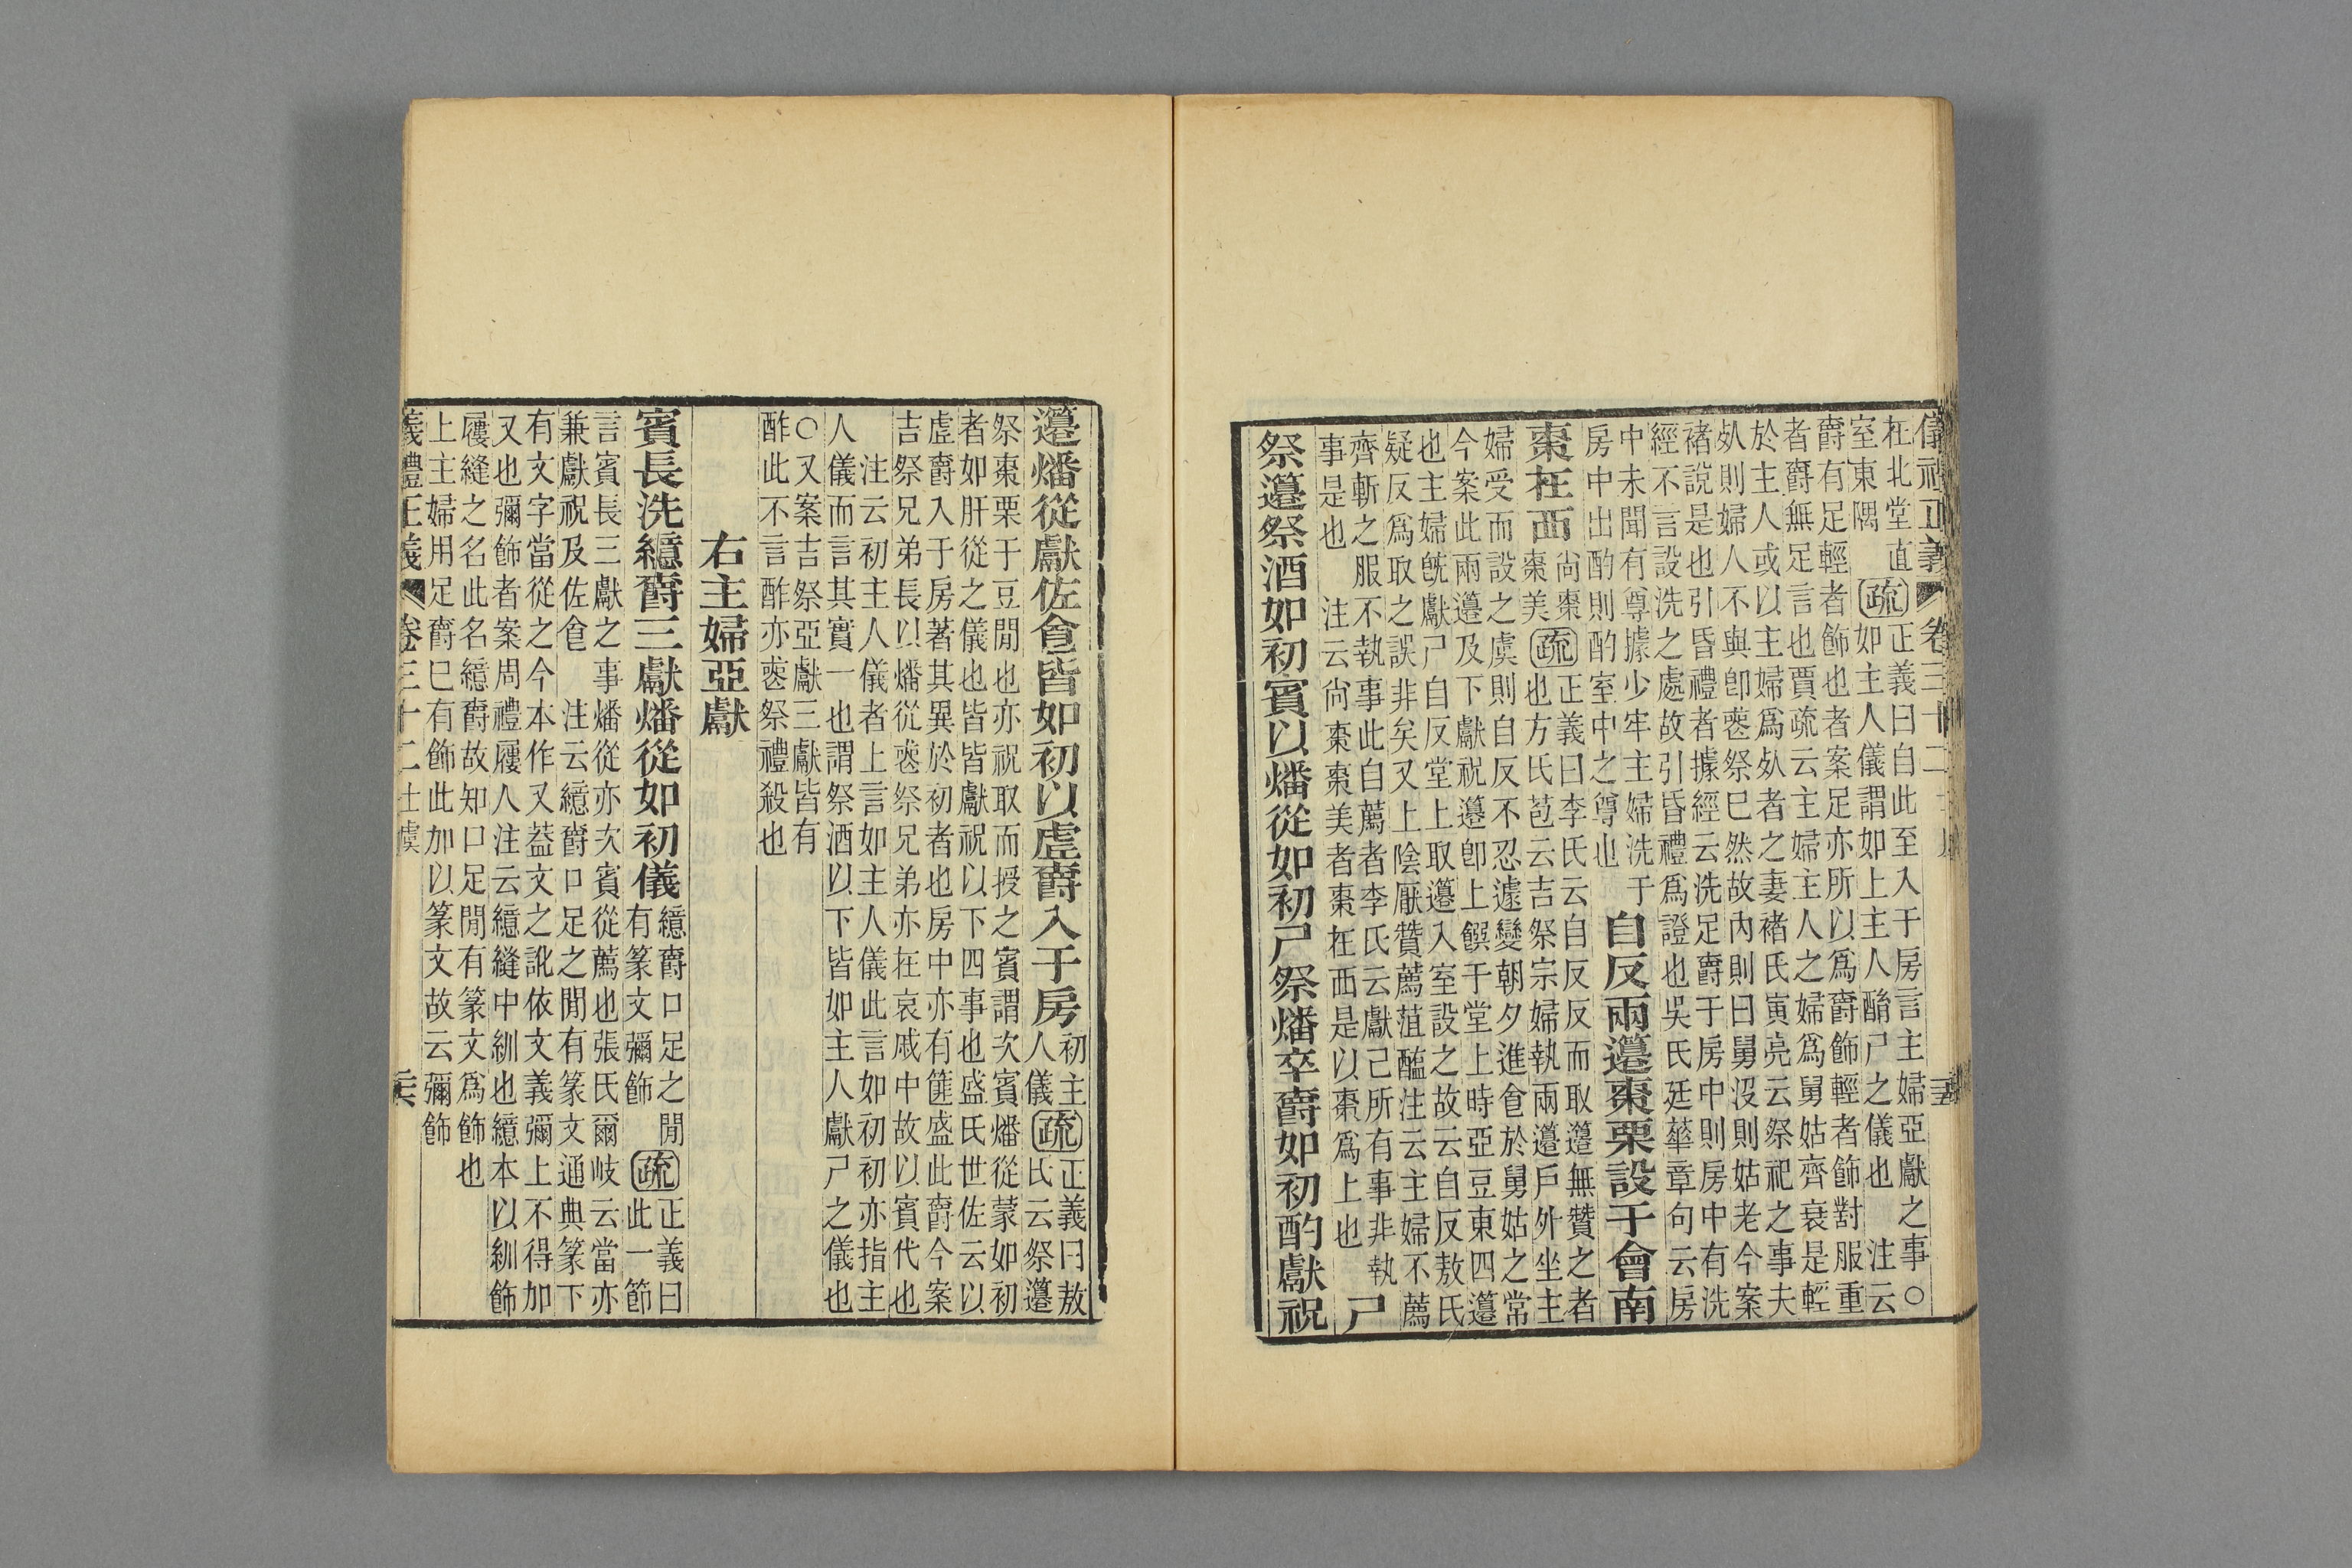 儀禮正義 卷三十二 士虞 三五
在北堂直室東隅 疏 正義曰自此至入于房言主婦亞獻之事○
如主人儀謂如上主人酳尸之儀也 注云
爵有足輕者飾也者案足亦所以爲爵飾輕者飾對服重
者爵無足言也賈疏云主婦主人之婦爲舅姑齊衰是輕
於主人或以主婦爲㱇者之妻褚氏寅亮云祭祀之事夫
㱇則婦人不與卽喪祭巳然故內則曰舅沒則姑老今案
褚說是也引昏禮者據經云洗足爵于房中則房中有洗
經不言設洗之處故引昏禮爲證也吳氏廷華章句云房
中未聞有尊據少牢主婦洗于
房中出酌則酌室中之尊也
自反兩籩棗栗設于會南
棗在西 尚棗棗美 疏 正義曰李氏云自反反而取籩無贊之者
也方氏苞云吉祭宗婦執兩籩戶外坐主
婦受而設之虞則自反不忍遽變朝夕進食於舅姑之常
今案此兩籩及下獻祝籩卽上饌于堂上時亞豆東四籩
也主婦旣獻尸自反堂上取籩入室設之故云自反敖氏
疑反爲取之誤非矣又上陰厭贊薦菹醢注云主婦不薦
齊斬之服不執事此自薦者李氏云獻己所有事非執
事是也 注云尚棗棗美者棗在西是以棗爲上也
尸
祭籩祭酒如初賓以燔從如初尸祭燔卒爵如初酌獻祝
籩燔從獻佐食皆如初以虛爵入于房 初主人儀 疏 正義曰敖氏云祭籩
祭棗栗于豆閒也亦祝取而授之賓謂次賓燔從蒙如初
者如肝從之儀也皆皆獻祝以下四事也盛氏世佐云以
虛爵入于房著其異於初者也房中亦有篚盛此爵今案
吉祭兄弟長以燔從喪祭兄弟亦在哀戚中故以賓代也
注云初主人儀者上言如主人儀此言如初初亦指主
人儀而言其實一也謂祭酒以下皆如主人獻尸之儀也
○又案吉祭亞獻三獻皆有
酢此不言酢亦喪祭禮殺也
右主婦亞獻
賓長洗繶爵三獻燔從如初儀 繶爵口足之閒有篆文彌飾 疏 正義曰此一節
言賓長三獻之事燔從亦次賓從薦也張氏爾岐云當亦
兼獻祝及佐食 注云繶爵口足之閒有篆文通典篆下
有文字當從之今本作又葢文之訛依文義彌上不得加
又也彌飾者案周禮屨人注云繶縫中紃也繶本以紃飾
屨縫之名此名繶爵故知口足閒有篆文爲飾也
上主婦用足爵巳有飾此加以篆文故云彌飾
儀禮正義 卷三十二 士虞 三六